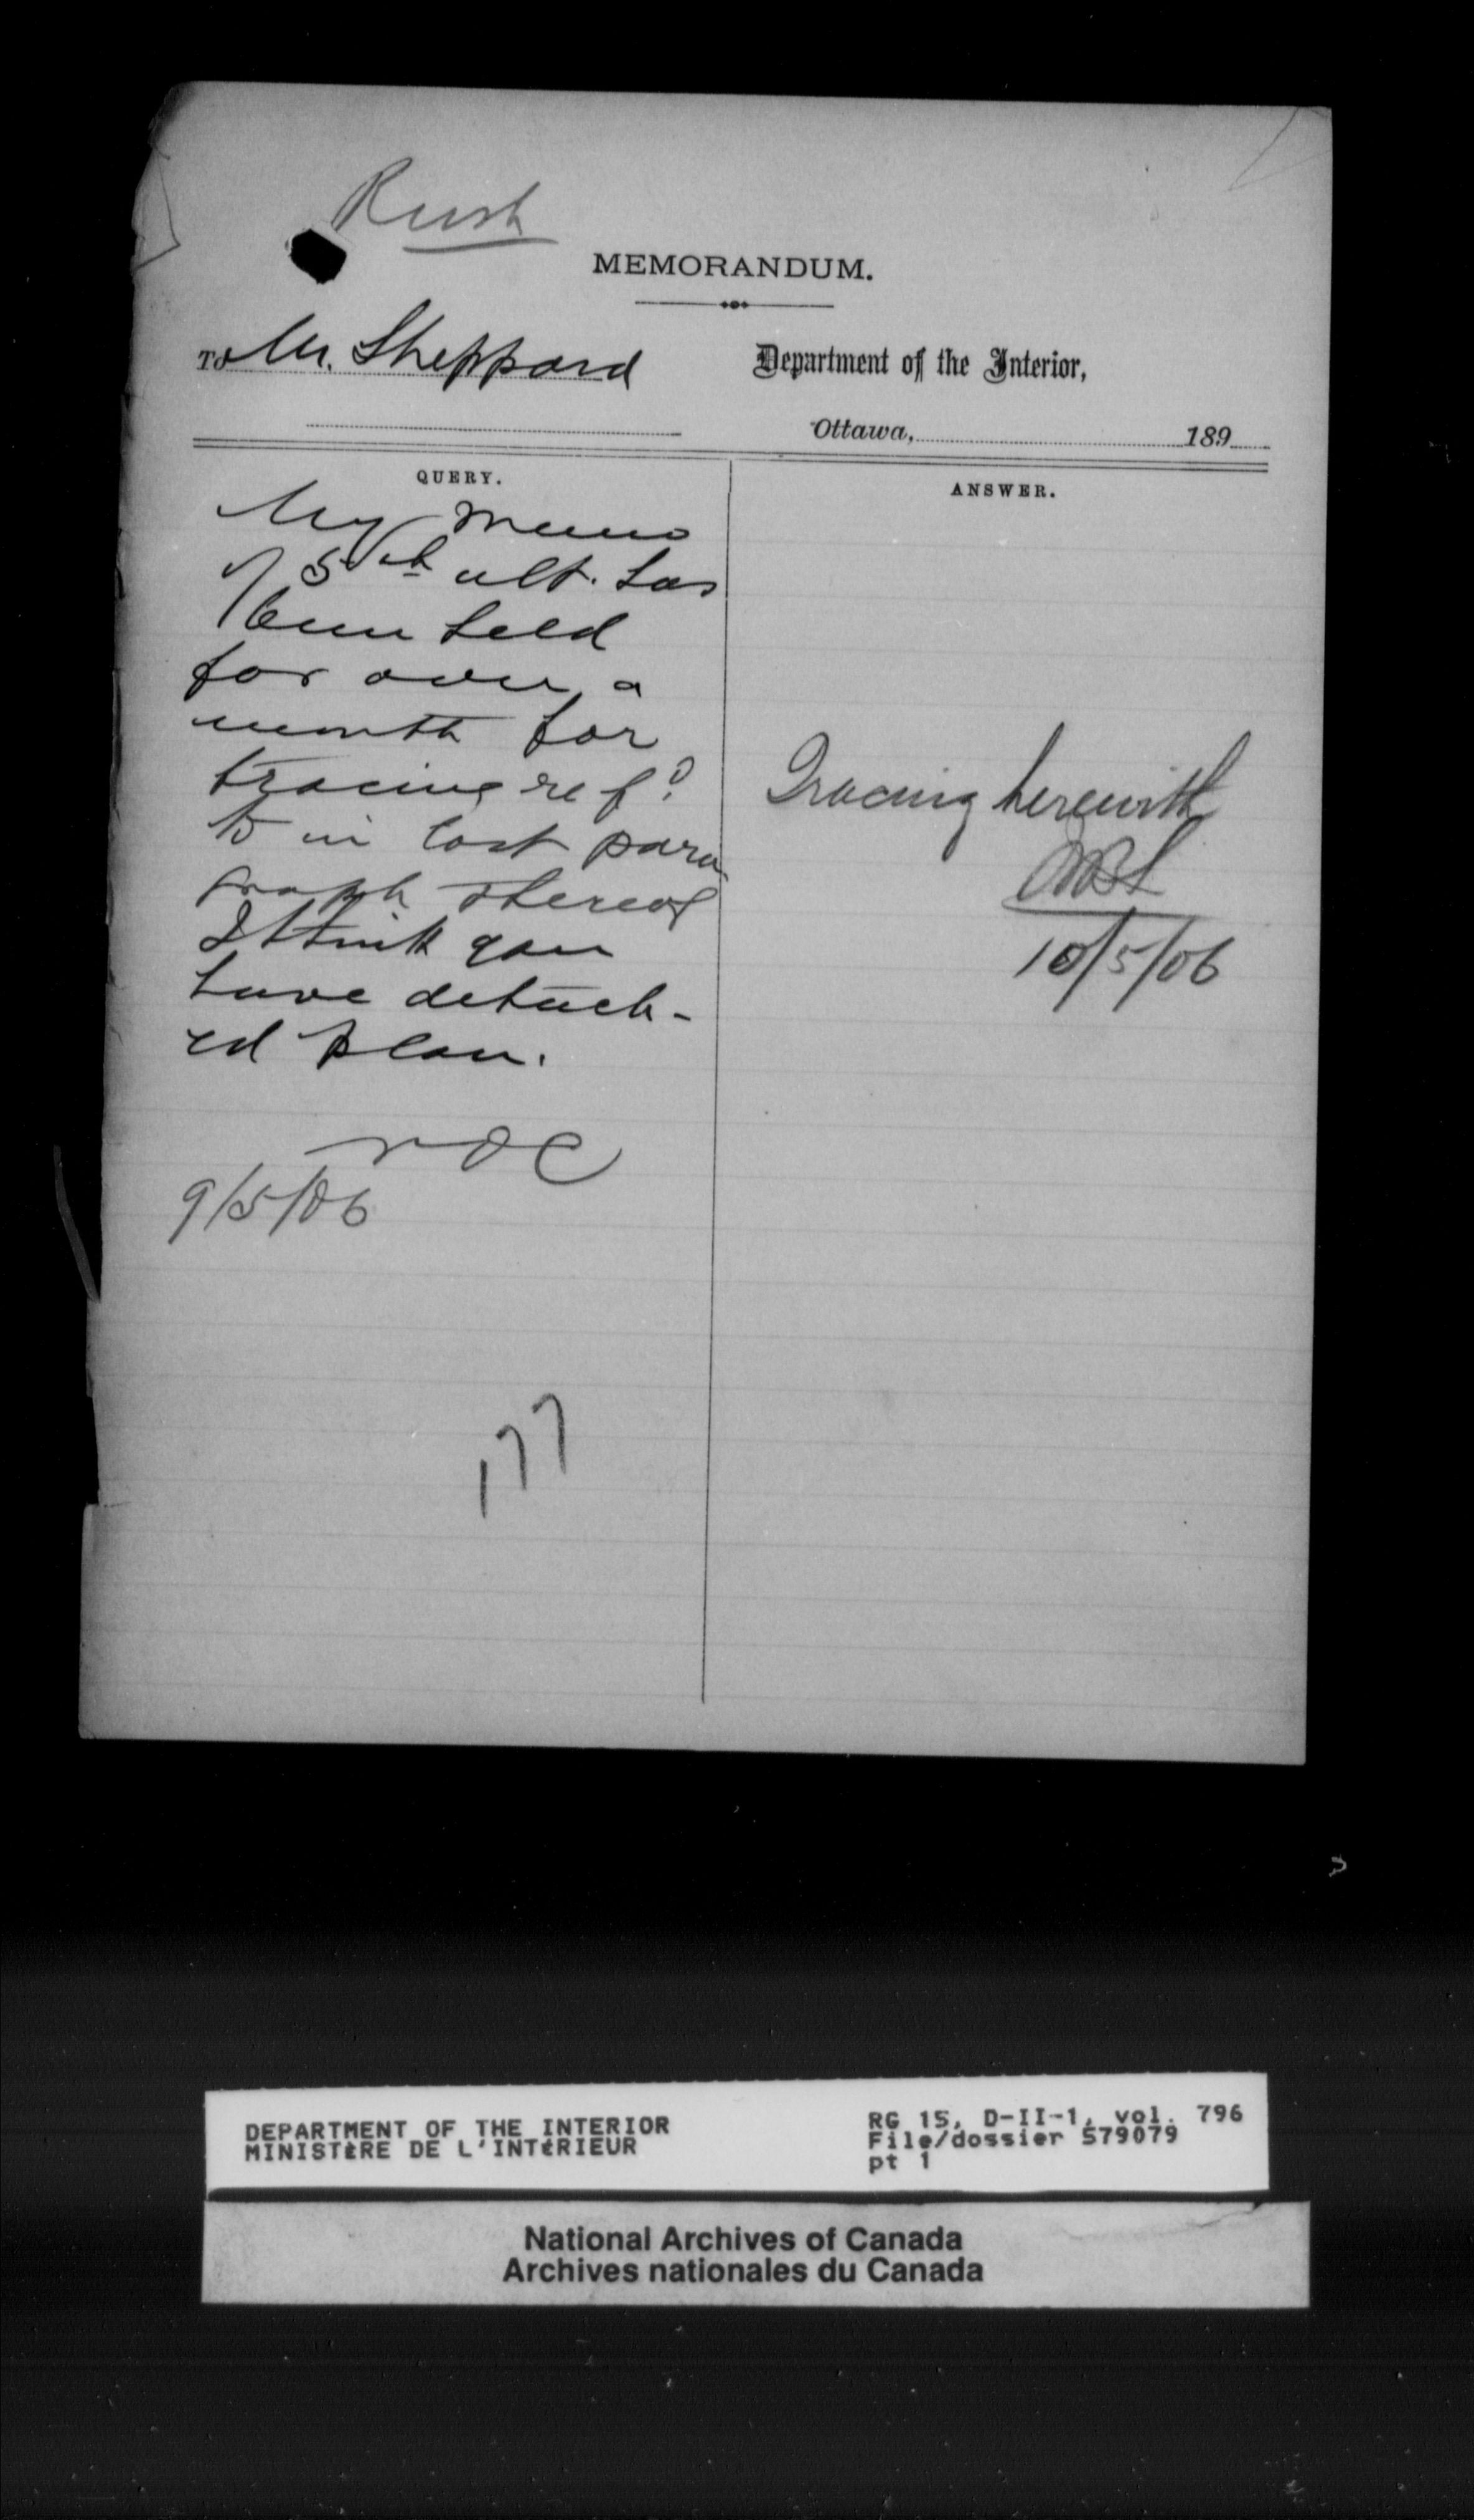 Rush
MEMORANDUM.
To Mr. Sheppard
Department of the Interior,
Ottawa, 189
QUERY.
My memo
of 5th ult. has
been held
for over a
month for
tracing refd
to in last para-
graph thereof
I think you
have detach-
ed plan.
9/5/06
177
ANSWER.
Tracing herewith
10/5/06
DEPARTMENT OF THE INTERIOR
MINISTÈRE DE L'INTÉRIEUR
RG 15, D-II-1, vol. 796
File/dossier 579079
pt 1
National Archives of Canada
Archives nationales du Canada